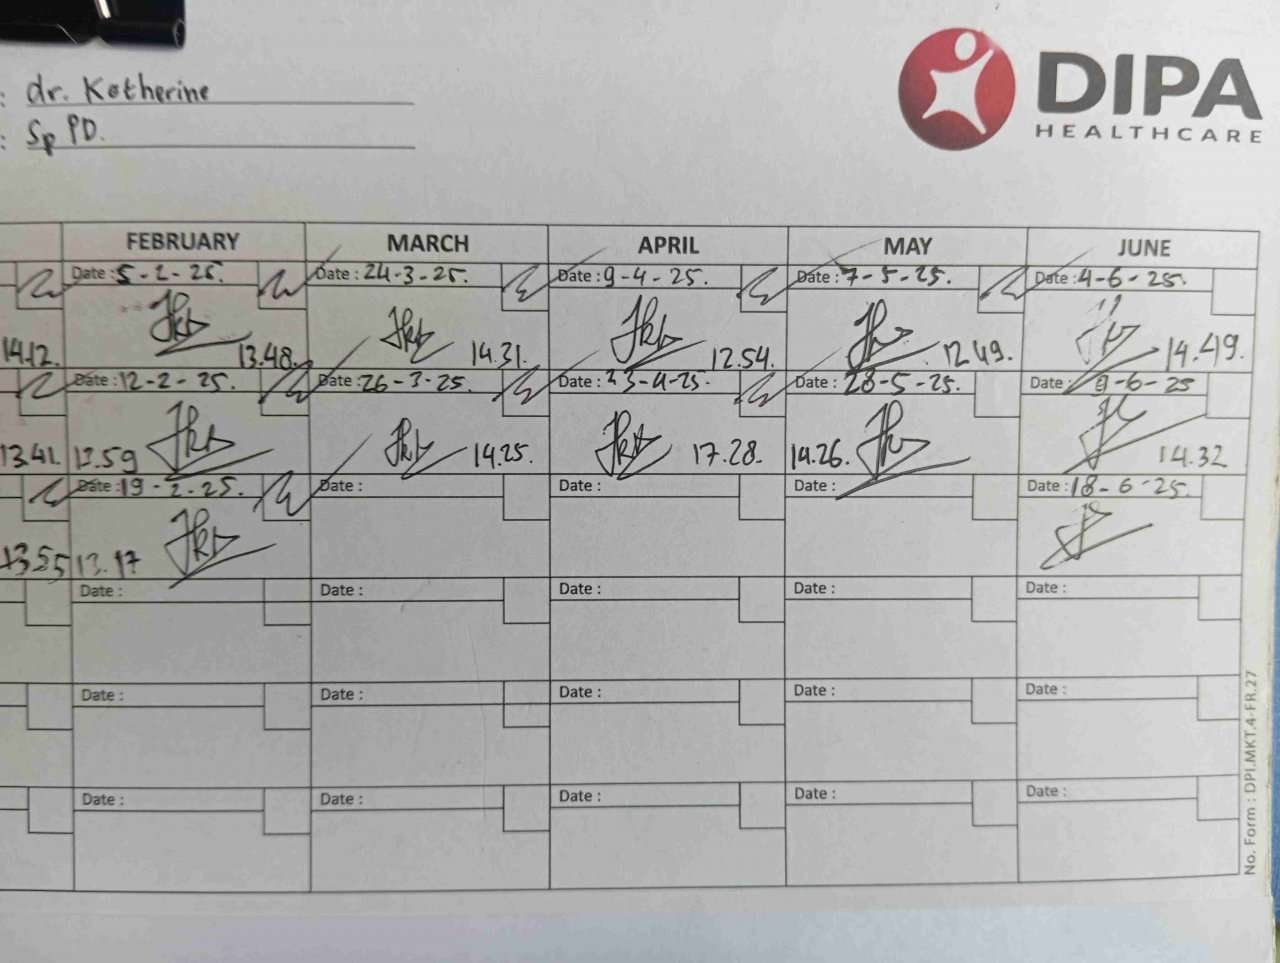 : dr. Katherine
: Sp PD.
DIPA
HEALTHCARE
FEBRUARY MARCH APRIL MAY JUNE
Date : 5-2-25. Date : 24-3-25. Date : 9-4-25. Date : 7-5-25. Date : 4-6-25.
14.12. 13.48. 14.31. 12.54. 12.49. 14.49.
Date : 12-2-25. Date : 26-3-25. Date : 23-4-25. Date : 28-5-25. Date : -6-25
13.41. 13.59 14.25. 17.28. 14.26. 14.32
Date : 19-2-25. Date : Date : Date : Date : 18-6-25.
13.55 13.17
Date : Date : Date : Date : Date :
Date : Date : Date : Date : Date :
Date : Date : Date : Date : Date :
No. Form : DPI.MKT.4-FR.27